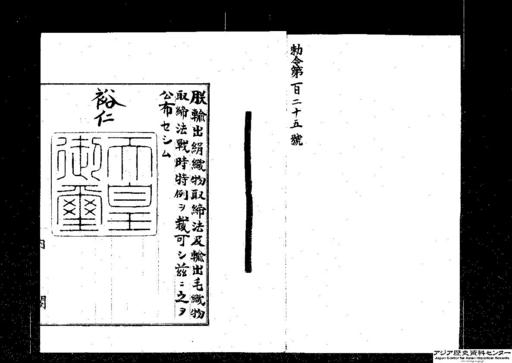 勅令第百二十五號
朕輸出絹織物取締法及輸出毛織物
取締法戰時特例ヲ裁可シ茲ニ之ヲ
公布セシム
裕仁
天皇
御璽
内 閣
アジア歴史資料センター
Japan Center for Asian Historical Records